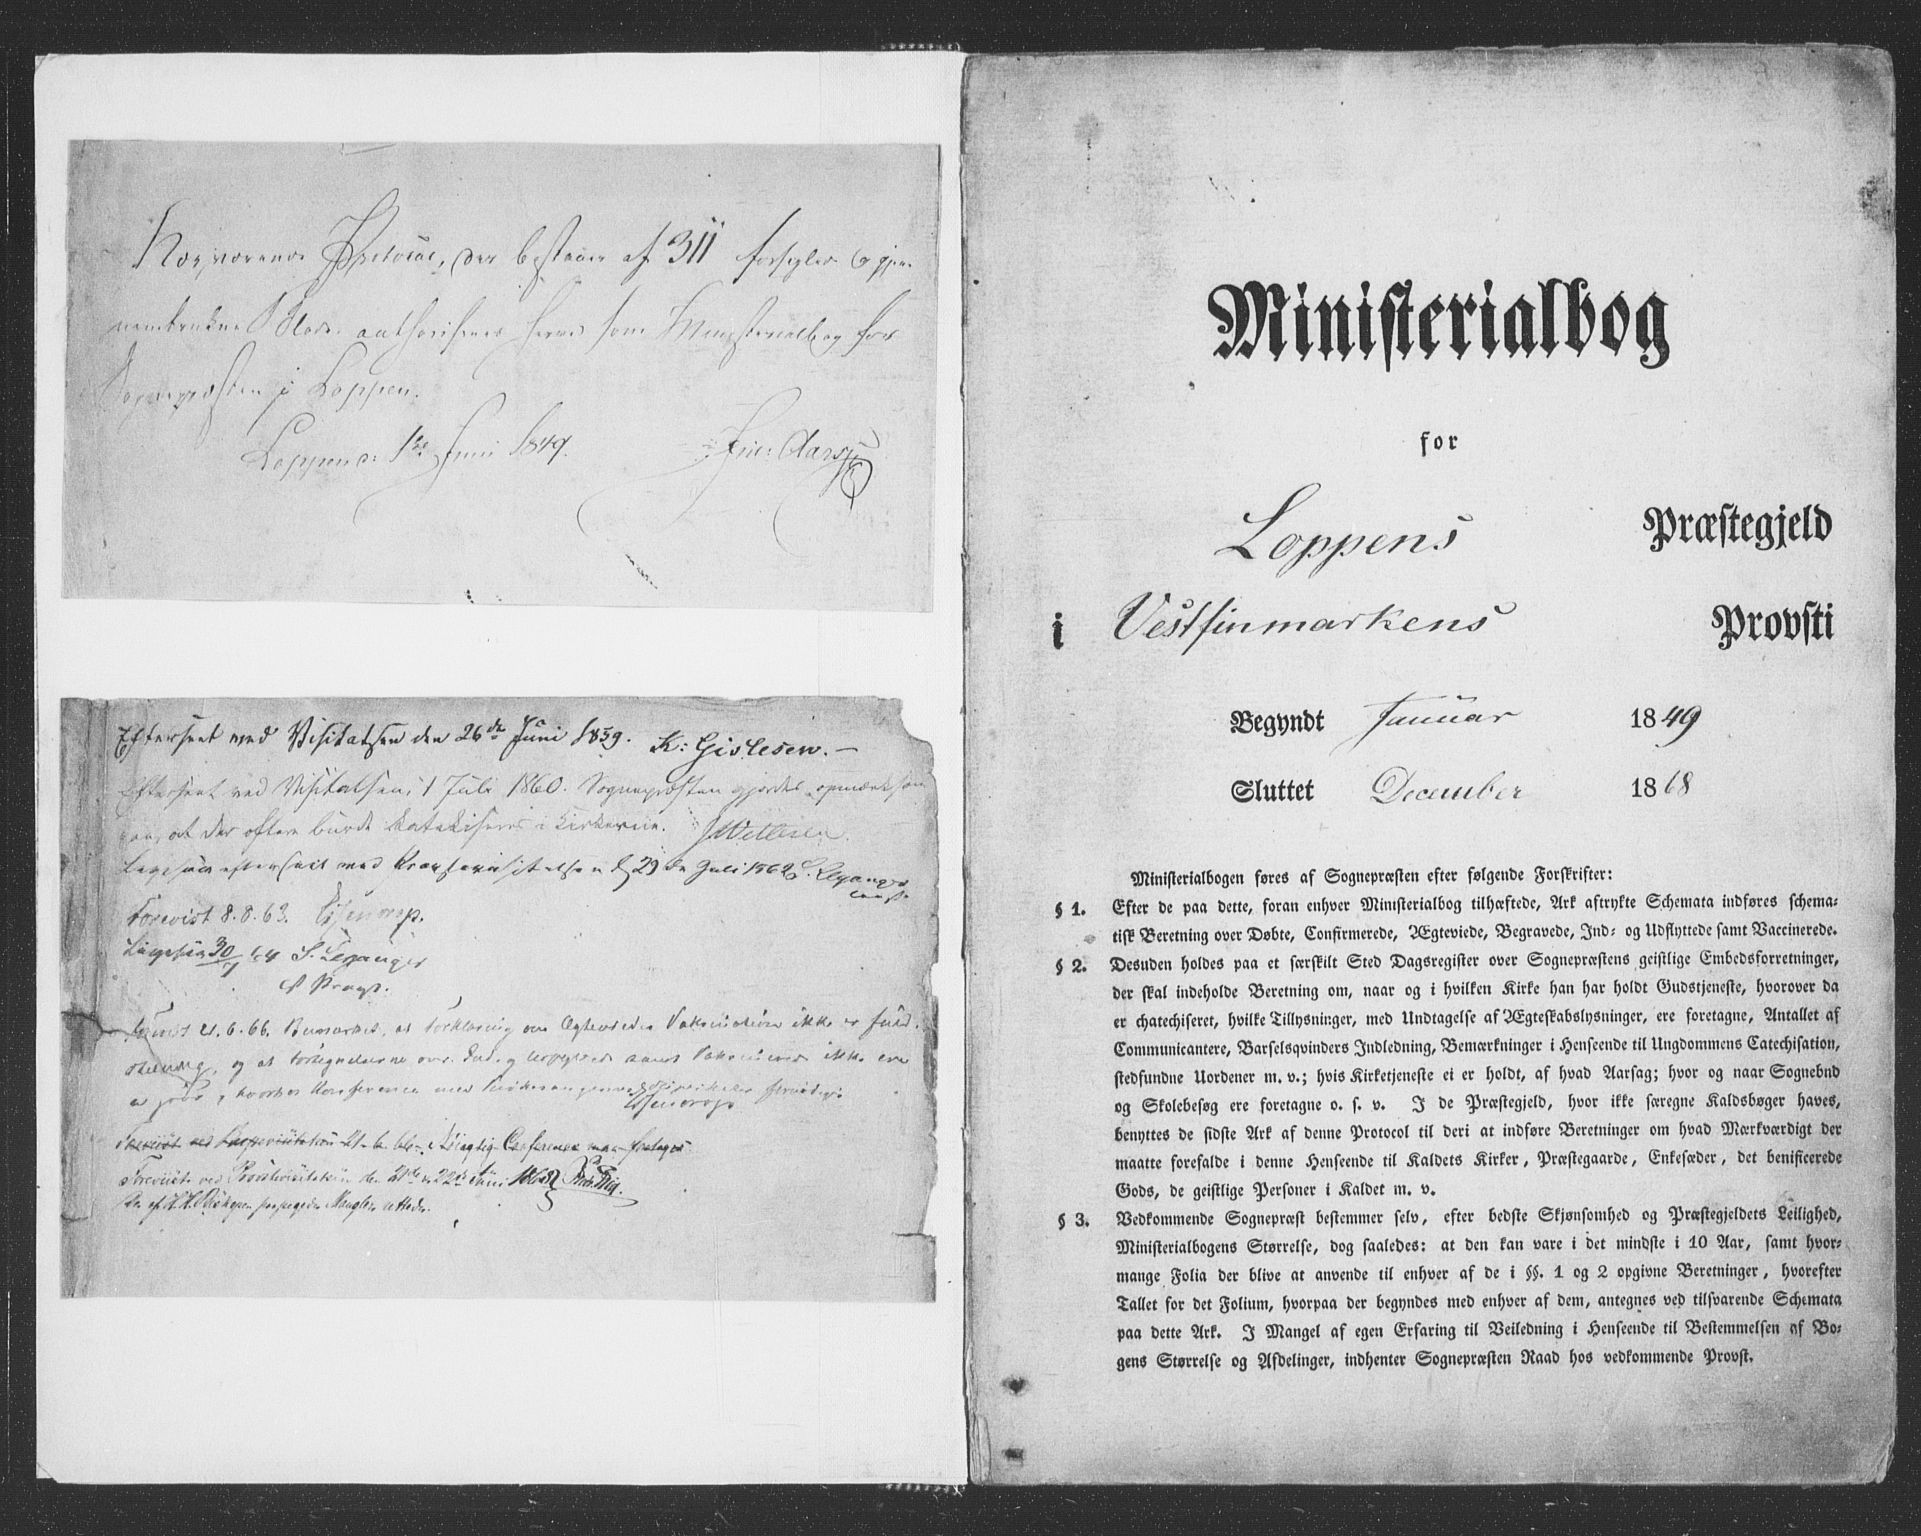 Nærværende Protocol, der bestaaer af 311 forseglede og gjen-
nemdragne Blade authoriseres herved som Ministerialbog for
Sognepræsten i Loppen.
Loppen d: 1ste Juni 1849. Aars
Efterseet ved Visitatsen den 26de Juni 1859. K: Gislesen. —
Efterseet ved Visitatsen 1 Juli 1860. Sognepræsten gjordes opmærksom
paa, at der oftere burde katekiseres i Kirkerne. JWetlesen.
efterseet ved Provstevisitatsen d 29de Juli 1862 S. Leganger
const.
Forevist 8.8.63.
30/7 64 S. Leganger
Forevist 21.6.66. Bemærket, at Forklaring om Ægteviedes Vaksination ikke er fuld-
stændig, og at Fortegnelserne over Ind- og Udflyttede samt Vaksinerede ikke ere
Forevist ved Provstevisitatsen den 21de & 22de Juni 1868
Ministerialbog
for
Loppens Præstegjeld
i Vestfinmarkens Provsti
Begyndt Januar 1849
Sluttet December 1868
Ministerialbogen føres af Sognepræsten efter følgende Forskrifter:
§ 1. Efter de paa dette, foran enhver Ministerialbog tilhæftede, Ark aftrykte Schemata indføres schema-
tisk Beretning over Døbte, Confirmerede, Ægteviede, Begravede, Ind- og Udflyttede samt Vaccinerede.
§ 2. Desuden holdes paa et særskilt Sted Dagsregister over Sognepræstens geistlige Embedsforretninger,
der skal indeholde Beretning om, naar og i hvilken Kirke han har holdt Gudstjeneste, hvorover da
er chatechiseret, hvilke Tillysninger, med Undtagelse af Ægteskabslysninger, ere foretagne, Antallet af
Communicantere, Barselsqvinders Indledning, Bemærkninger i Henseende til Ungdommens Catechisation,
stedfundne Uordener m. v.; hvis Kirketjeneste ei er holdt, af hvad Aarsag; hvor og naar Sognebud
og Skolebesøg ere foretagne o. s. v. I de Præstegjeld, hvor ikke særegne Kaldsbøger haves,
benyttes de sidste Ark af denne Protocol til deri at indføre Beretninger om hvad Mærkværdigt der
maatte forefalde i denne Henseende til Kaldets Kirker, Præstegaarde, Enkesæder, det benificerede
Gods, de geistlige Personer i Kaldet m. v.
§ 3. Vedkommende Sognepræst bestemmer selv, efter bedste Skjønsomhed og Præstegjeldets Leilighed,
Ministerialbogens Størrelse, dog saaledes: at den kan vare i det mindste i 10 Aar, samt hvor-
mange Folia der blive at anvende til enhver af de i §§. 1 og 2 opgivne Beretninger, hvorefter
Tallet for det Folium, hvorpaa der begyndes med enhver af dem, antegnes ved tilsvarende Schemata
paa dette Ark. I Mangel af egen Erfaring til Veiledning i Henseende til Bestemmelsen af Bo-
gens Størrelse og Afdelinger, indhenter Sognepræsten Raad hos vedkommende Provst.